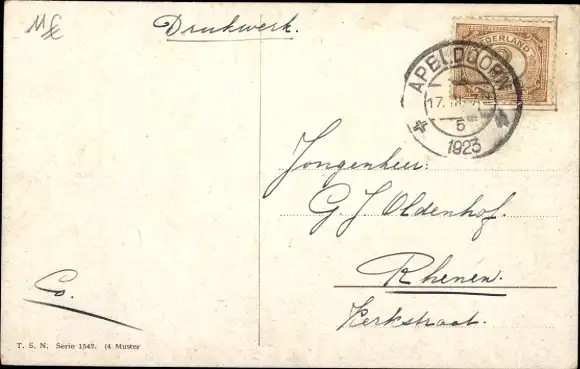 Drukwerk.
NEDERLAND
APELDOORN
5
1923
Jongenheer:
G. J. Oldenhof.
Rhenen.
Kerkstraat.
Co.
T. S. N. Serie 1542. (4 Muster